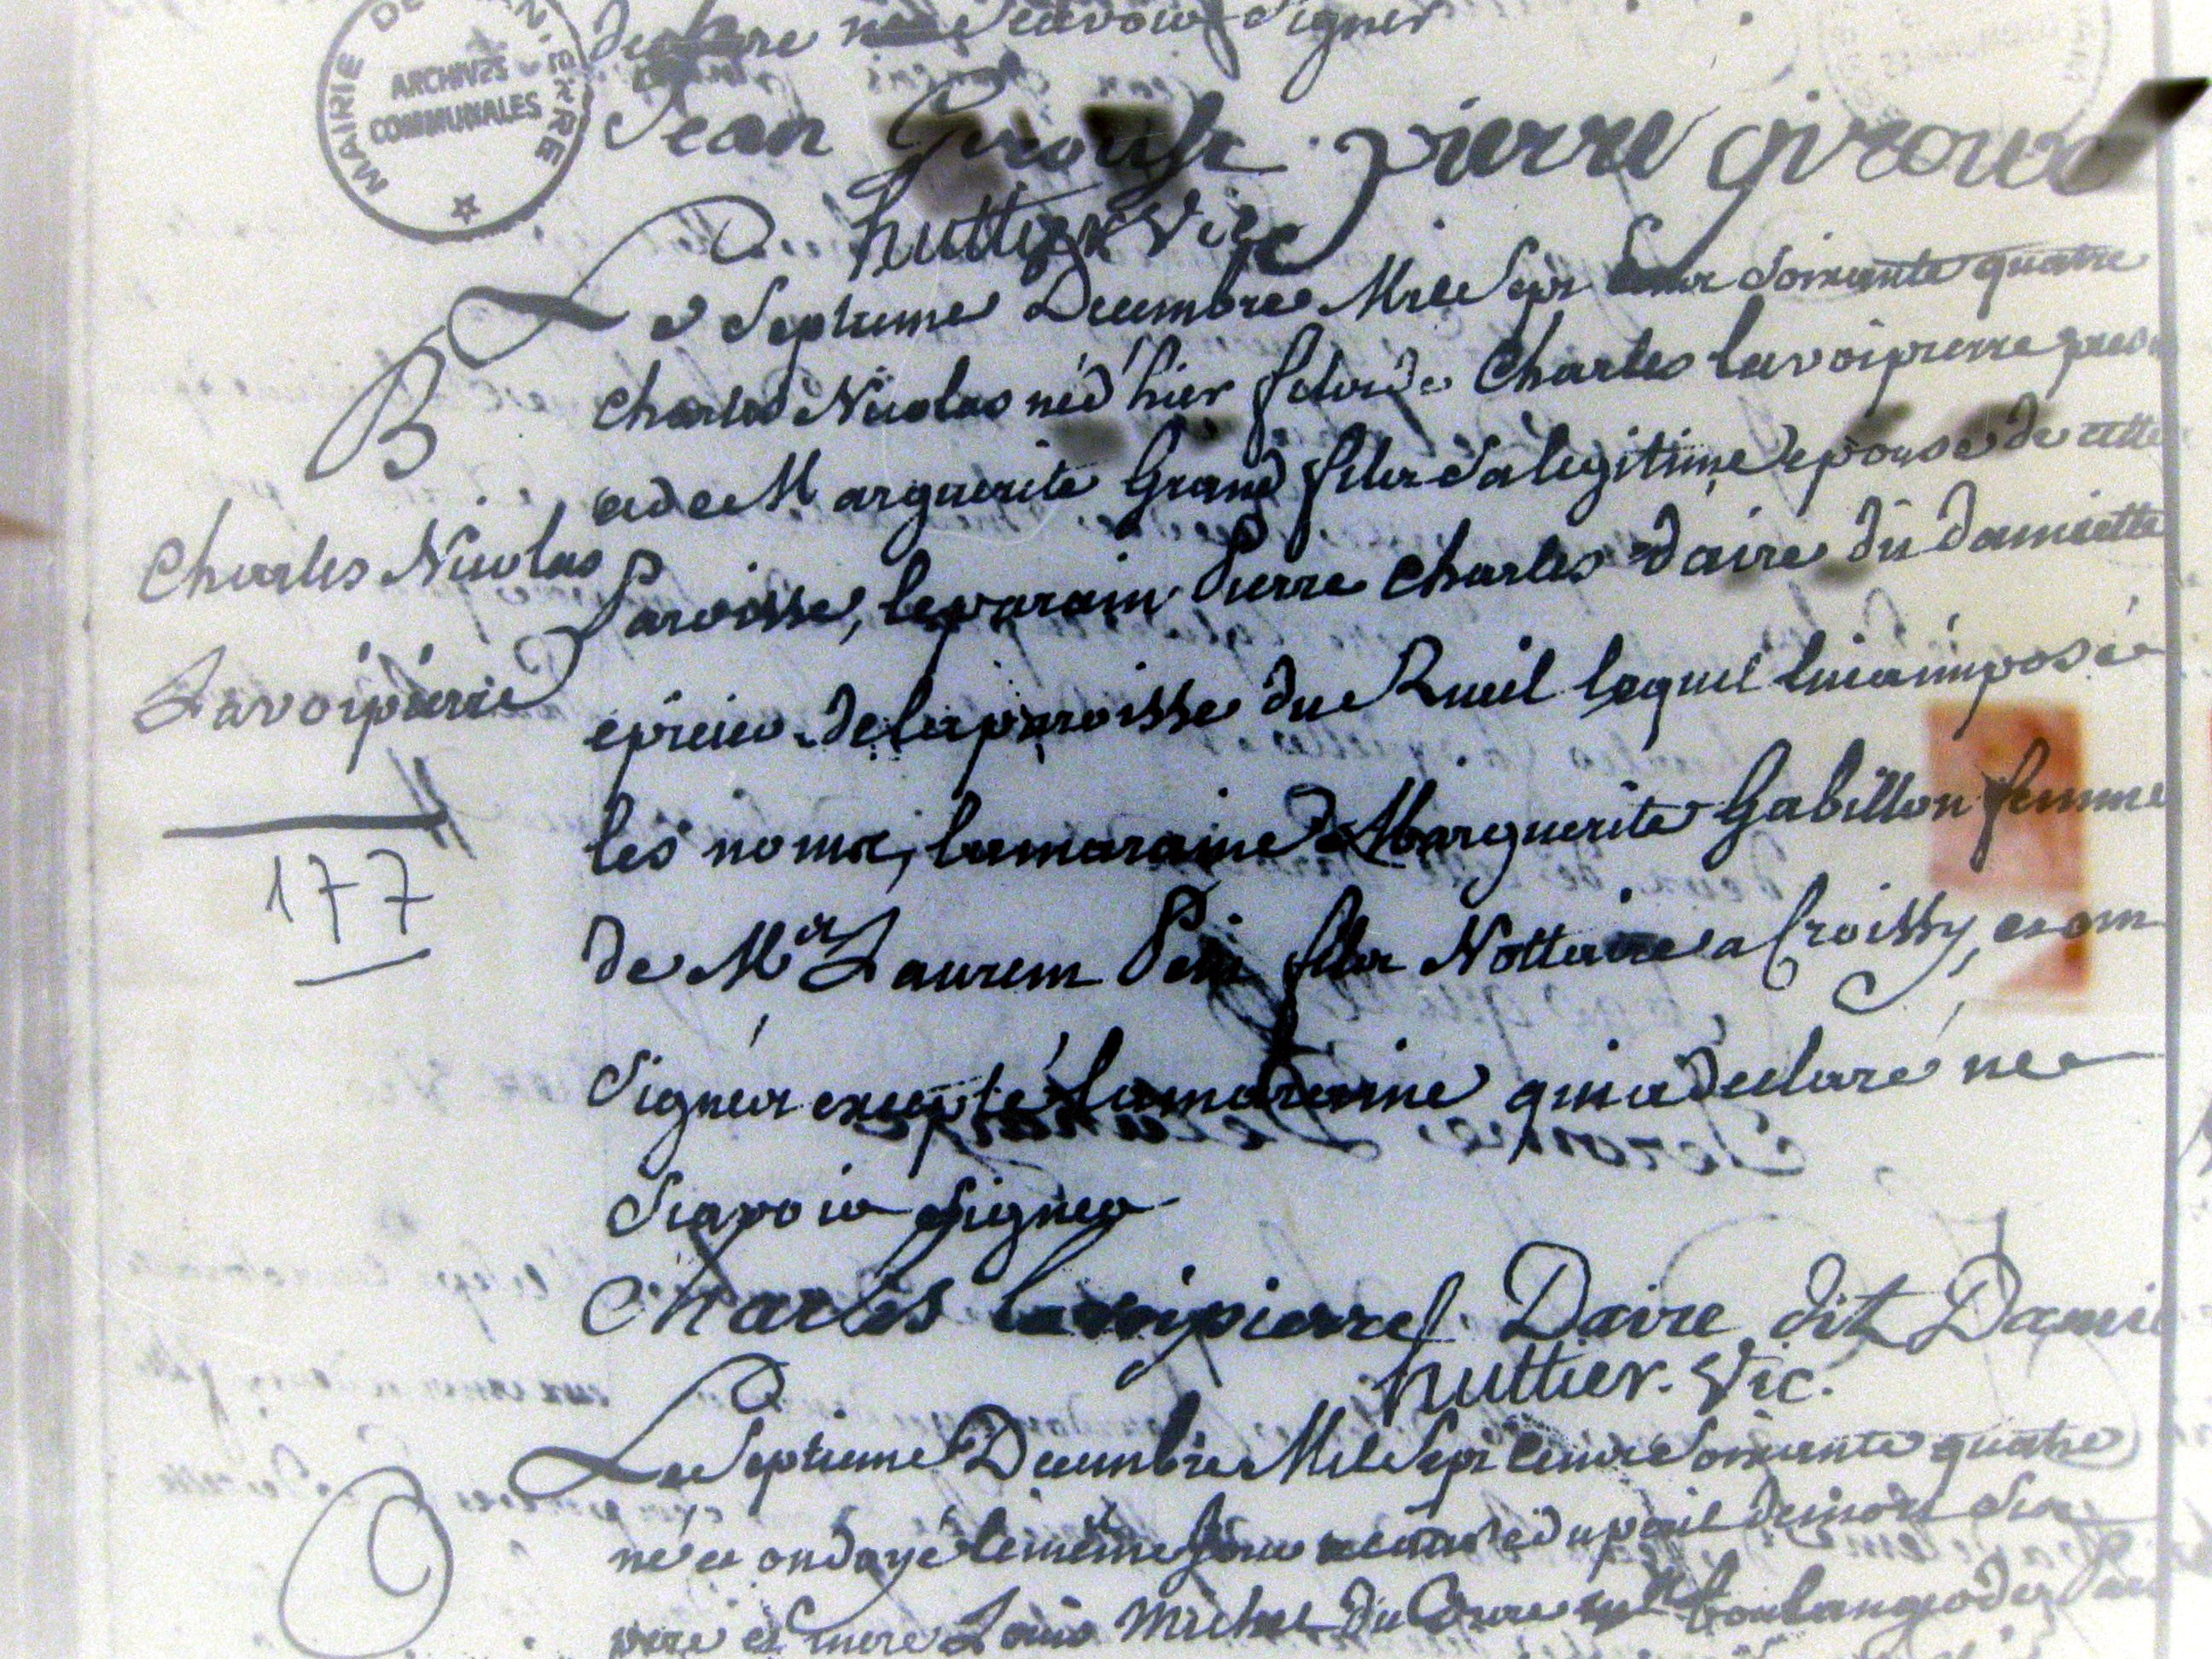 MAIRIE DE
ARCHIVES
COMMUNALES
declare ne Scavoir Signer
Jean Giroust pierre giroust
huttier Vic
Le Septieme Decembre Mil Sept Cent Soixante quatre
B
charles Nicolas né d'hier fils de Charles lavoipierre
et de Marguerite Grand fils Sa legitime epouse de cette
Charles Nicolas
Lavoipierre
Paroisse, le parain Pierre Charles daire du damiette
epicier de la paroisse du Rueil lequel lui a imposé
les noms, la maraine Marguerite Gabillon femme
177
de Me Laurent fils Nottaire a Croissy, et ont
Signés excepté la maraine qui a declaré ne
Scavoir Signer
Charles lavoipierre Daire dit Damie
huttier. Vic.
Le Septieme Decembre Mil Sept Cent Soixante quatre
O
né et ondoyé le même jour
pere et mere Louis Michel du boulanger de